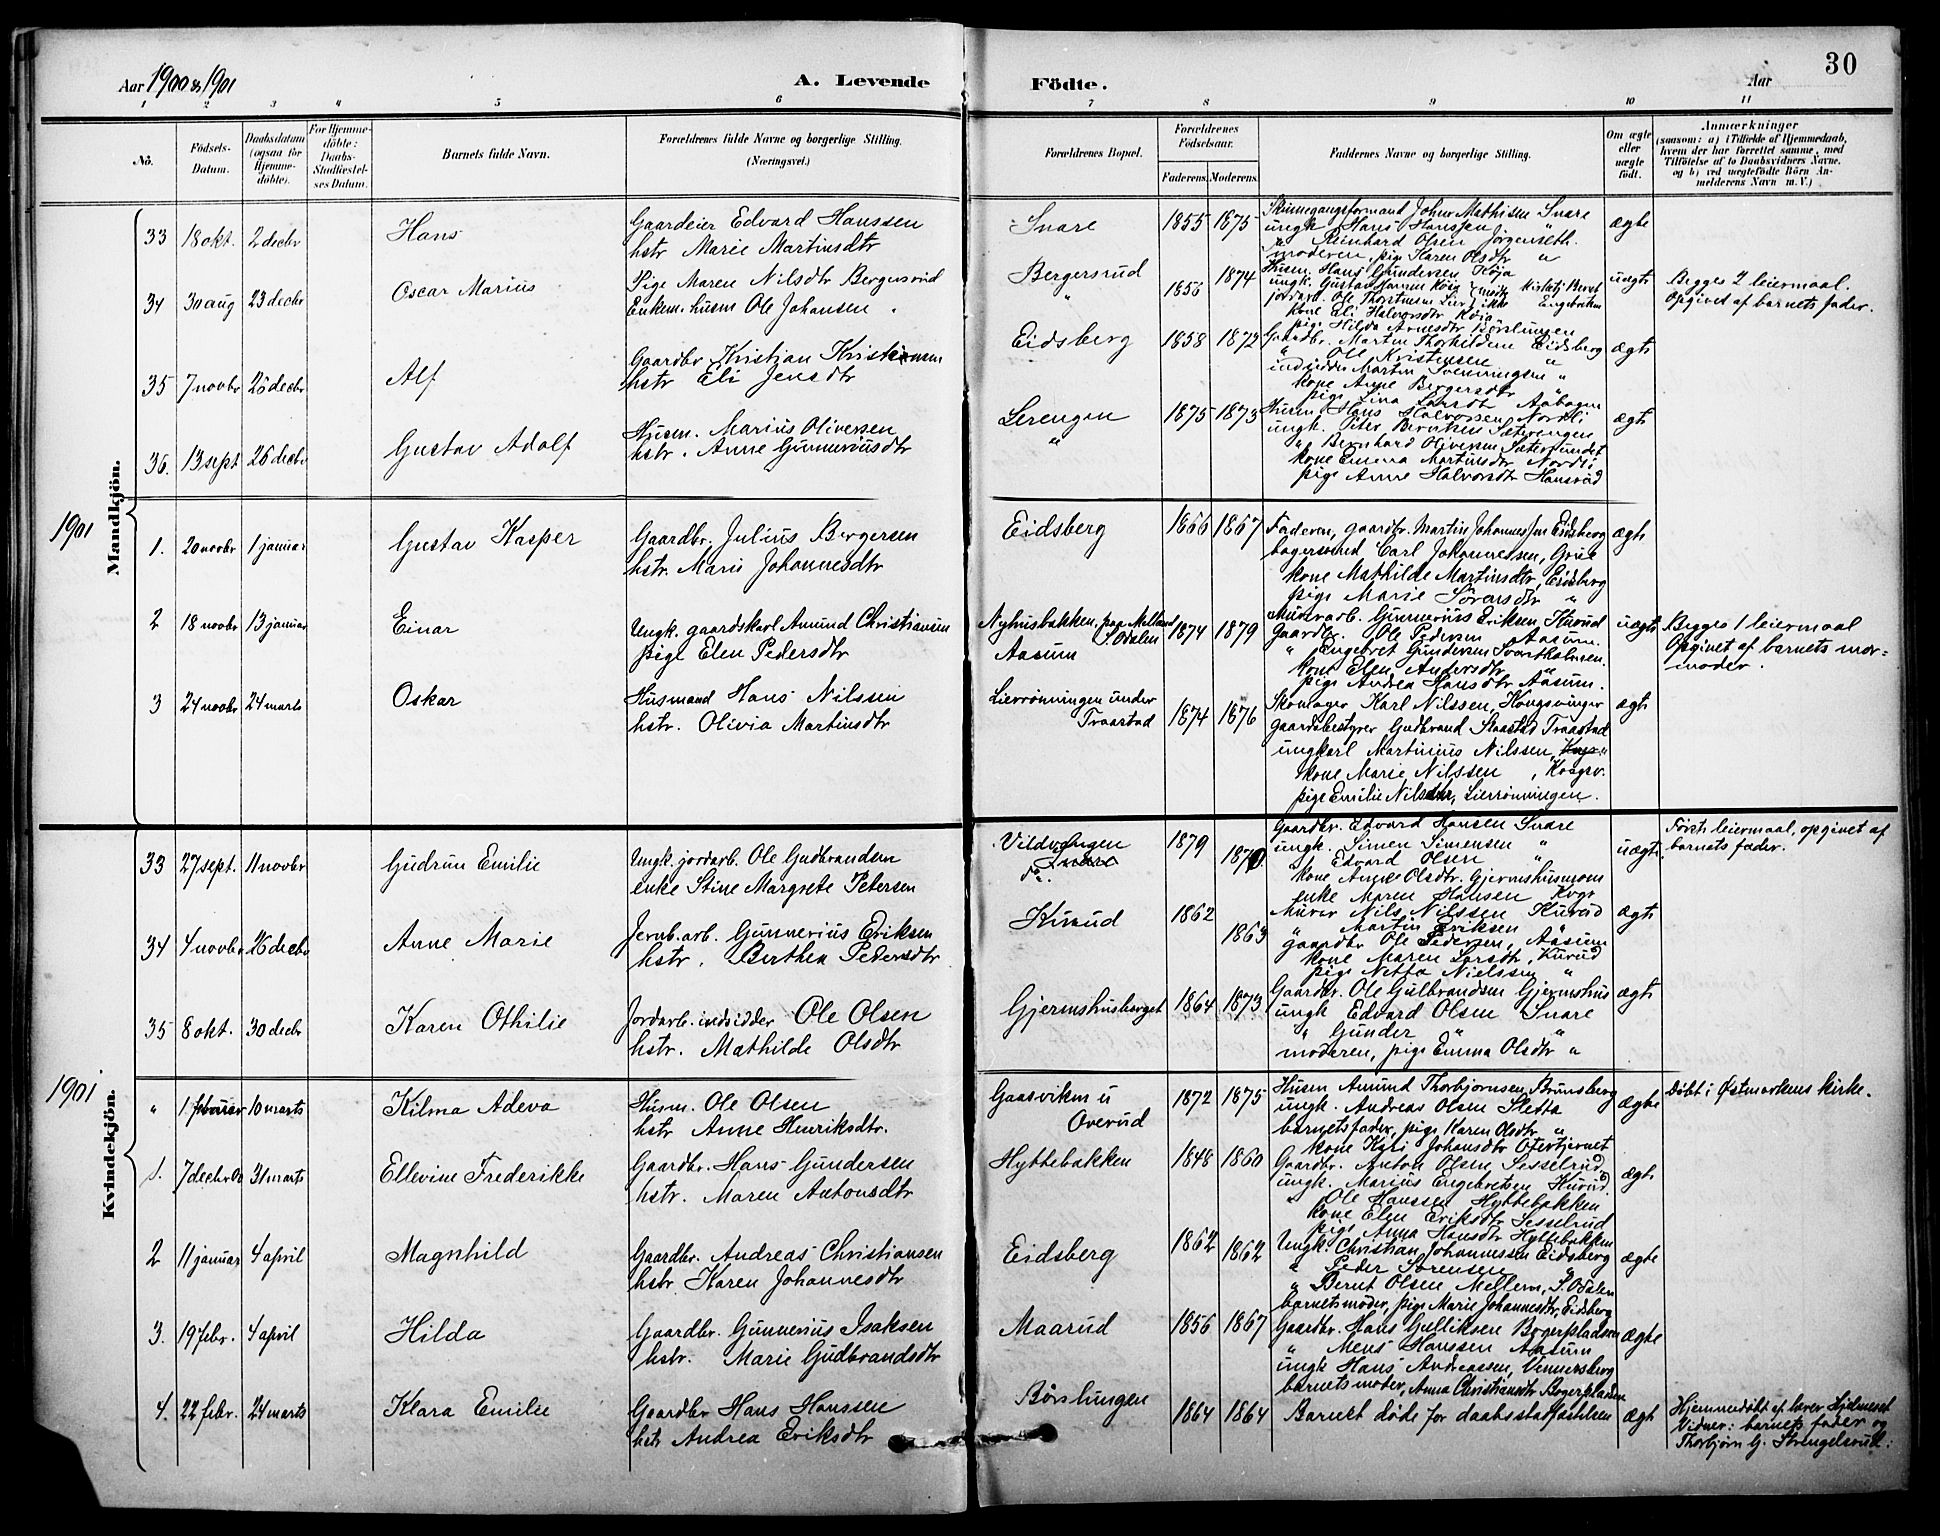 30
Aar 1900 & 1901
A. Levende Födte.
Aar
1 2 3 4 5 6 7 8 9 10 11
No.
Födsels-Datum.
Daabsdatum (ogsaa for Hjemme-döbte).
For Hjemme-döbte: Daabs-Stadfæstel-ses Datum.
Barnets fulde Navn.
Forældrenes fulde Navne og borgerlige Stilling. (Næringsvei.)
Forældrenes Bopæl.
Forældrenes Födselsaar.
Faderens. Moderens.
Faddernes Navne og borgerlige Stilling.
Om ægte eller uægte födt.
Anmærkninger
(saasom: a) i Tilfælde af Hjemmedaab, hvem der har forrettet samme, med Tilföielse af to Daabsvidners Navne, og b) ved uægtefödte Börn An-melderens Navn m. V.)
Mandkjön.
33 18 okt. 2 decbr Hans
Gaardeier Edvard Hanssen
hstr Marie Martinsdtr
Snare 1855 1875
Skinnegangsformand Johan Mathisen Snare
ungk Hans Hanssen "
" Reinhard Olsen Jørgenseth.
moderen, pige Karen Olsdtr "
ægte
34 30 aug 23 decbr Oscar Marius
Pige Maren Nilsdtr Bergersrud
Enkem. husm Ole Johansen "
Bergersrud 1856 1874
Husm. Hans Gundersen Koja
jordarb. Ole Thorstensen Lier
kone Eli Halvorsdtr Koja
pige Hilda Arnesdtr Børslungen
uægte
Begges 2 leiermaal.
Opgivet af barnets fader.
35 7 novbr 26 decbr Alf
Gaardbr Kristian Kristiansen
hstr Eli Jensdtr
Eidsberg 1858 1872
Gaardbr. Martin Thorkildsen Eidsberg
" Ole Kristensen "
indsidder Martin Svenningsen "
kone Anne Bergersdtr "
pige Lina Larsdtr Aabogen
ægte
36. 13 sept 26 decbr Gustav Adolf
Husm. Marius Oliversen
hstr. Anne Gunneriusdtr
Lerengen " 1875 1873
Husm. Hans Halvorsen Nordli
ungk. Peter Berntsen Sæterengen
" Bernhard Oliversen Sætersundet
kone Emma Martinsdtr Nordli
pige Anne Halvorsdtr Hansrud
ægte
1901
1. 20 novbr 1 januar Gustav Kasper
Gaardbr. Julius Bergersen
hstr. Marie Johannesdtr
Eidsberg 1866 1867
Faderen, gaardbr. Martin Johannessen Eidsberg
bagersvend Carl Johannessen, Grue
kone Mathilde Martinsdtr, Eidsberg
pige Marie Sørensdtr "
ægte
2 18 novbr 13 januar Einar
Ungk. gaardskarl Amund Christiansen
pige Elen Pedersdtr
Nyhusbakken, pige Melland S. Odalen
Aasum 1874 1879
Murerarb. Gunnerius Eriksen Kurud
Gaardbr. Ole Pedersen Aasum.
" Engebret Gundersen Svartholmen.
kone Elen Andersdtr "
pige Andrea Hansdtr Aasum.
uægte
Begges 1 leiermaal
Opgivet af barnets mor=
moder.
3 24 novbr 24 marts Oskar
Husmand Hans Nilssen
hstr. Olivia Martinsdtr
Lierrønningen under
Traastad 1874 1876
Skomager Karl Nilssen, Kongsvinger
gaardsbestyrer Gudbrand Staastad Traastad
ungkarl Martinius Nilssen,
kone Marie Nilssen, Kongsv.
pige Emilie Nilsdtr, Lierrønningen.
ægte
Kvindekjön.
33 27 sept. 11 novbr Gudrun Emilie
Ungk. jordarb. Ole Gudbrandsen
enke Stine Margrete Petersen
Vildvangen
Snare 1879 1870
Gaardbr. Edvard Hansen Snare
ungk. Simen Simensen "
" Edvard Olsen "
kone Anne Olsdtr. Gjermshusmoen
enke Maren Hansen Kogv
uægte
Første leiermaal, opgivet af
barnets fader.
34 4 novbr 26 decbr Anne Marie
Jernb. arb. Gunnerius Eriksen
hstr. Berthea Pedersdtr
Kurud 1862 1863
Murer Nils Nilssen Kurud
" Martin Eriksen "
gaardbr Ole Pedersen, Aasum
kone Maren Larsdtr, Kurud
pige Netta Nielssen "
ægte
35 8 okt. 30 decbr Karen Othilie
Jordarb. indsidder Ole Olsen
hstr. Mathilde Olsdtr
Gjermshusberget 1864 1873
Gaardbr. Ole Gulbrandsen Gjermshus
ungk Edvard Olsen Snare
" Gunder " "
moderen, pige Emma Olsdtr "
ægte
1901
" 1 februar 10 marts Kilma Adeva
Husm. Ole Olsen
hstr. Anne Henriksdtr.
Gaasviken u
Overud 1872 1875
Husm Amund Thorbjørnsen Brunsberg
ungk. Andreas Olsen Sletta
barnets fader, pige Karen Olsdtr "
kone Kari Johansdtr Oterstjernet
ægte
Døbt i Østmarkens kirke.
1. 7 decbr 00 31 marts Ellevine Frederikke
Gaardbr. Hans Gundersen
hstr. Maren Antonsdtr
Hyttebakken 1848 1860
Gaardbr. Anton Olsen, Sesselrud
ungk. Marius Engebretsen Kurud
" Ole Hanssen Hyttebakken
kone Elen Eriksdtr Sesselrud
pige Anna Hansdtr Hyttebakken
ægte
2 11 januar 4 april Magnhild
Gaardbr. Andreas Christiansen
hstr. Karen Johannesdtr
Eidsberg 1862 1862
Ungk. Christian Johannessen Eidsberg
" Peder Sørensen "
" Bernt Olsen Mellem, S. Odalen
barnets moder, pige Marie Johannesdtr, Eidsberg
ægte
3. 19 febr. 4 april Hilda
Gaardbr. Gunnerius Isaksen
hstr. Marie Gudbrandsdtr
Maarud 1856 1867
Gaardbr. Hans Gulliksen Bogerpladsen
" Mens Hanssen Aasum
ungk Hans Andreassen, Vennersberg
barnets moder, Anna Christiansdtr Bogerpladsen
ægte
4. 22 febr. 24 marts Klara Emilie
Gaardbr Hans Hanssen
hstr Andrea Eriksdtr
Børslungen 1864 1864
Barnet døde før daabsstadfæstelsen
ægte
Hjemmedøbt af lærer Hjelmeset
Vidner: barnets fader og
Thorbjørn G. Strengelsrud.